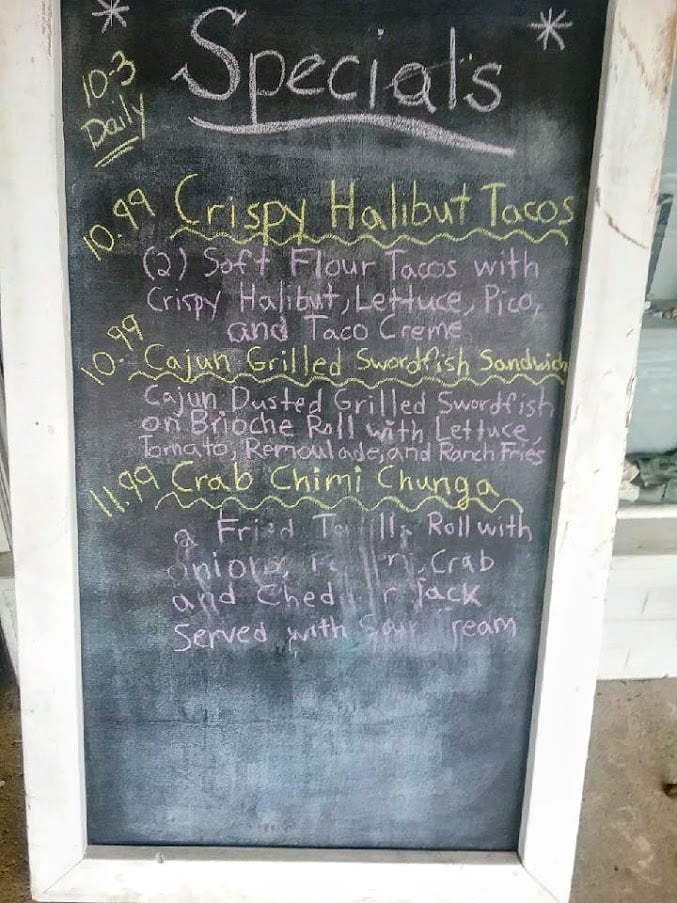 * Special's *
10-3
Daily
10.99 Crispy Halibut Tacos
(2) Soft Flour Tacos with
Crispy Halibut, Lettuce, Pico,
and Taco Creme
10.99 Cajun Grilled Swordfish Sandwich
Cajun Dusted Grilled Swordfish
on Brioche Roll with Lettuce,
Tomato, Remoulade, and Ranch Fries
11.99 Crab Chimi Chunga
a Fried Roll with
Crab
and Jack
Served with